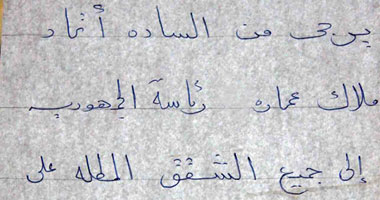 يرجى من الساده أتحاد
ملاك عماره رئاسة الجمهوريه
إلى جميع الشقق المطله على